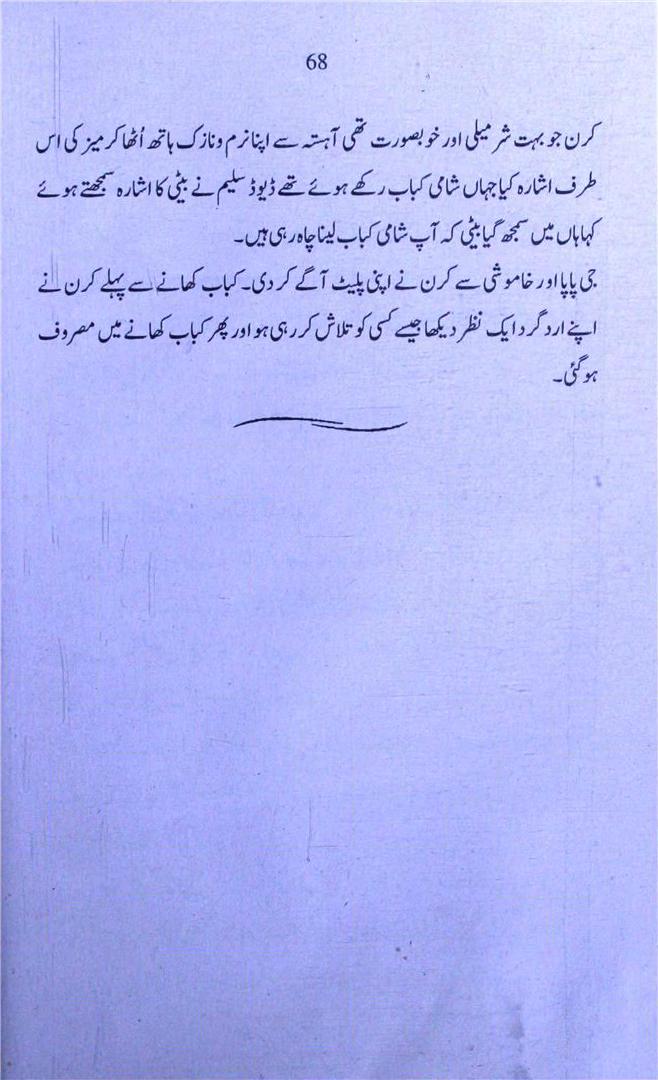 68
کرن جو بہت شرمیلی اور خوبصورت تھی آہستہ سے اپنا نرم و نازک ہاتھ اُٹھا کر میز کی اس
طرف اشارہ کیا جہاں شامی کباب رکھے ہوئے تھے ڈیوڈ سلیم نے بیٹی کا اشارہ سمجھتے ہوئے
کہا ہاں میں سمجھ گیا بیٹی کہ آپ شامی کباب لینا چاہ رہی ہیں۔
جی پاپا اور خاموشی سے کرن نے اپنی پلیٹ آگے کر دی۔ کباب کھانے سے پہلے کرن نے
اپنے ارد گرد ایک نظر دیکھا جیسے کسی کو تلاش کر رہی ہو اور پھر کباب کھانے میں مصروف
ہو گئی۔